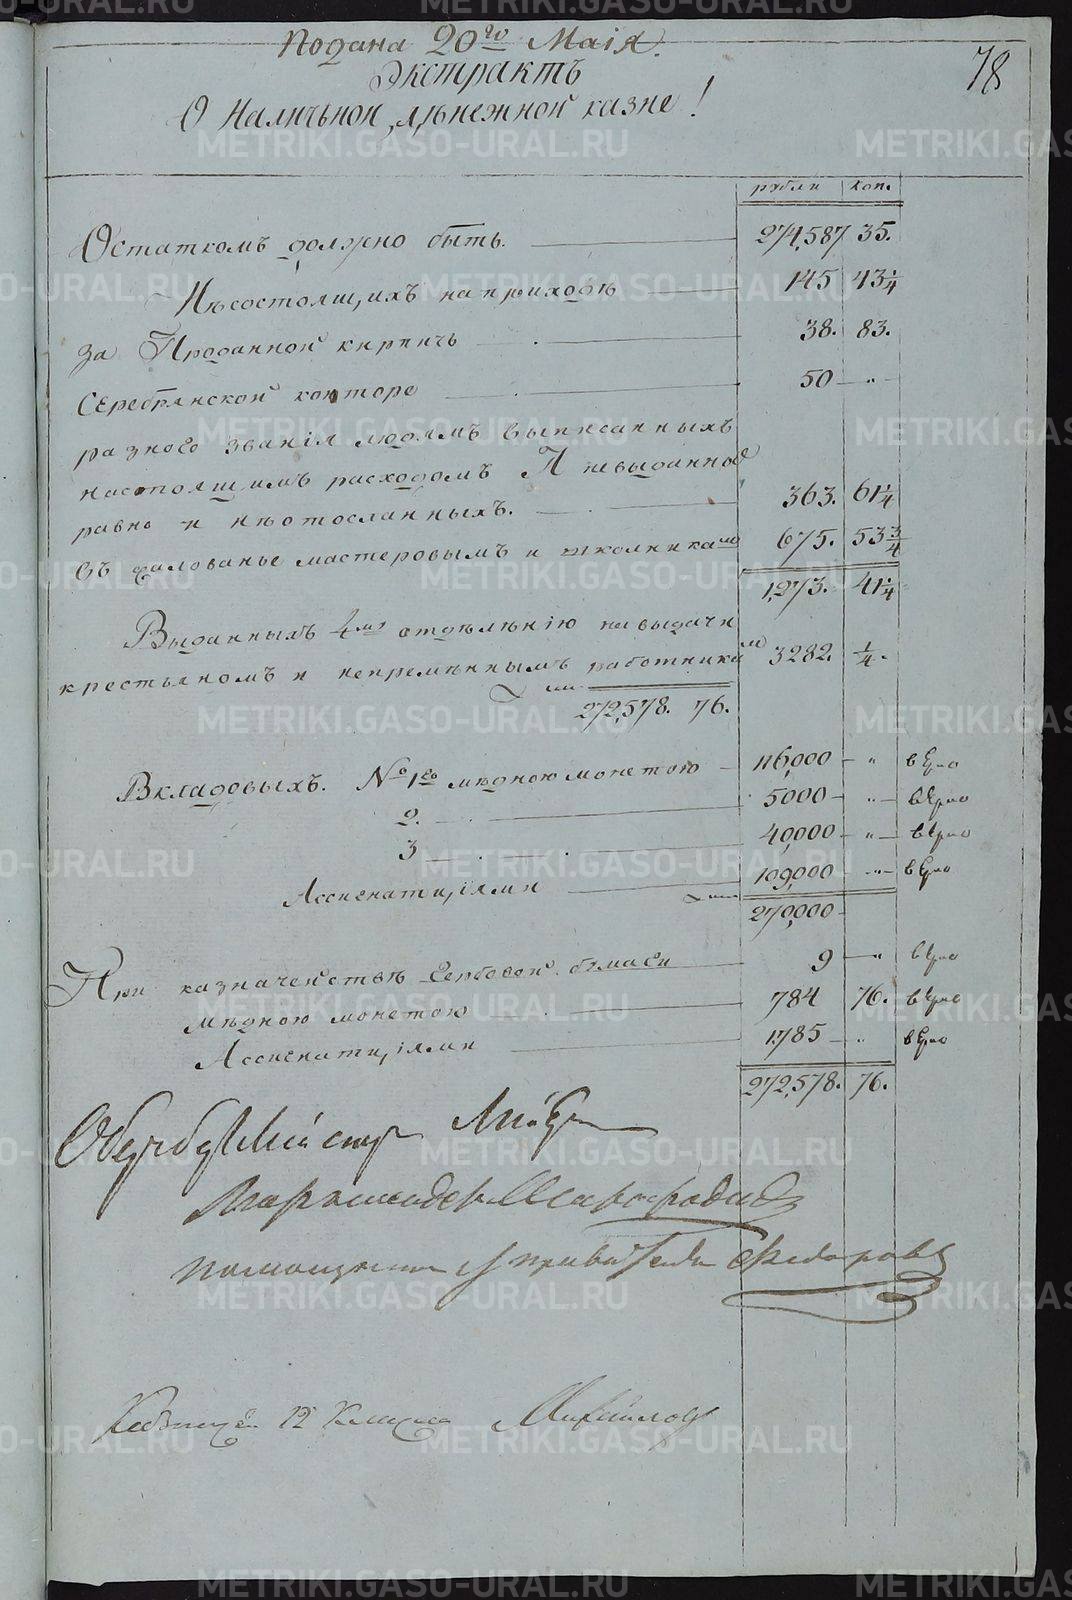 Подана 20го Маія.
78
Экстрактъ
О Наличьной денежной казне!
рубли коп.
Остаткомъ должно быть. 274,587 35.
Несостоящихъ на приходе 145 43 1/4
За Проданной кирпичь 38. 83.
Серебрянской конторе 50 — " —
разного званія людямъ выписанныхъ
настоящимъ расходомъ А невыданное
равно и неотосланныхъ. 363. 61 1/4
въ жалованье мастеровымъ и школникамъ 675. 53 3/4
1,273. 41 1/4
Выданныхъ 4му отделенію на выдачи
крестьяномъ и непременнымъ работникам 3282. 1/4.
272,578. 76.
В кладовыхъ. № 1го медною монетою 116,000 — " верно
2. 5000 — " — верно
3 40,000 — " — верно
Ассигнатціями 109,000 — " — верно
270,000 —
При казначействе Гербовой бумаги 9 — " верно
медною монетою 784 76. верно
Ассигнатціями 1785 — " верно
272,578. 76.
Обербергмейстер
помощник управителя Федоровъ
12 Класса Михайловъ
METRIKI.GASO-URAL.RU